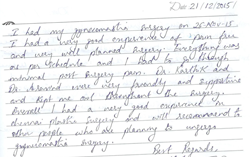 Date 21/12/2015
I had my gynecomastia surgery on 25-NOV-15
I had a very good experience of pain free
and very well planned surgery. Everything was
as per schedule and had to go through
minimal post surgery pain. Dr. Karthik and
Dr. Aravind were very friendly and supportive
and kept me out throughout the surgery.
Overall I had a very good experience in
plastic surgery and will recommend to
other people who are planning to undergo
gynecomastia surgery.
Best Regards,